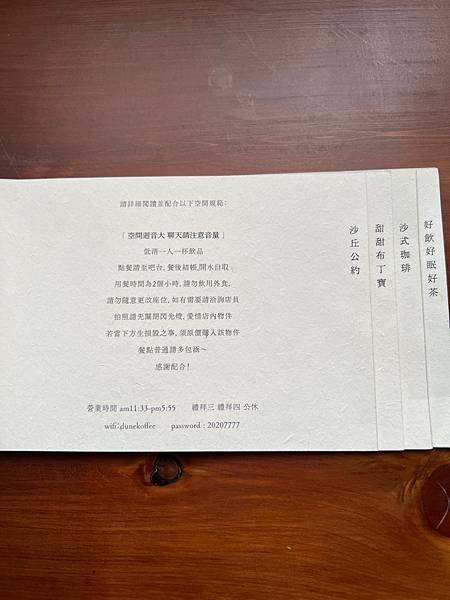 請詳細閱讀並配合以下空間規範：
「空間迴音大 聊天請注意音量」
低消一人一杯飲品
點餐請至吧台，餐後結帳，開水自取
用餐時間為2個小時，請勿飲用外食，
請勿隨意更改座位，如有需要請洽詢店員
拍照請先關閉閃光燈，愛惜店內物件
若當下方生損毀之事，須原價購入該物件
餐點普通請多包涵～
感謝配合！
營業時間 am11:33-pm5:55 禮拜三 禮拜四 公休
wifi:dunekoffee password : 20207777
好飲好眠好茶
沙式咖琲
甜甜布丁寶
沙丘公約